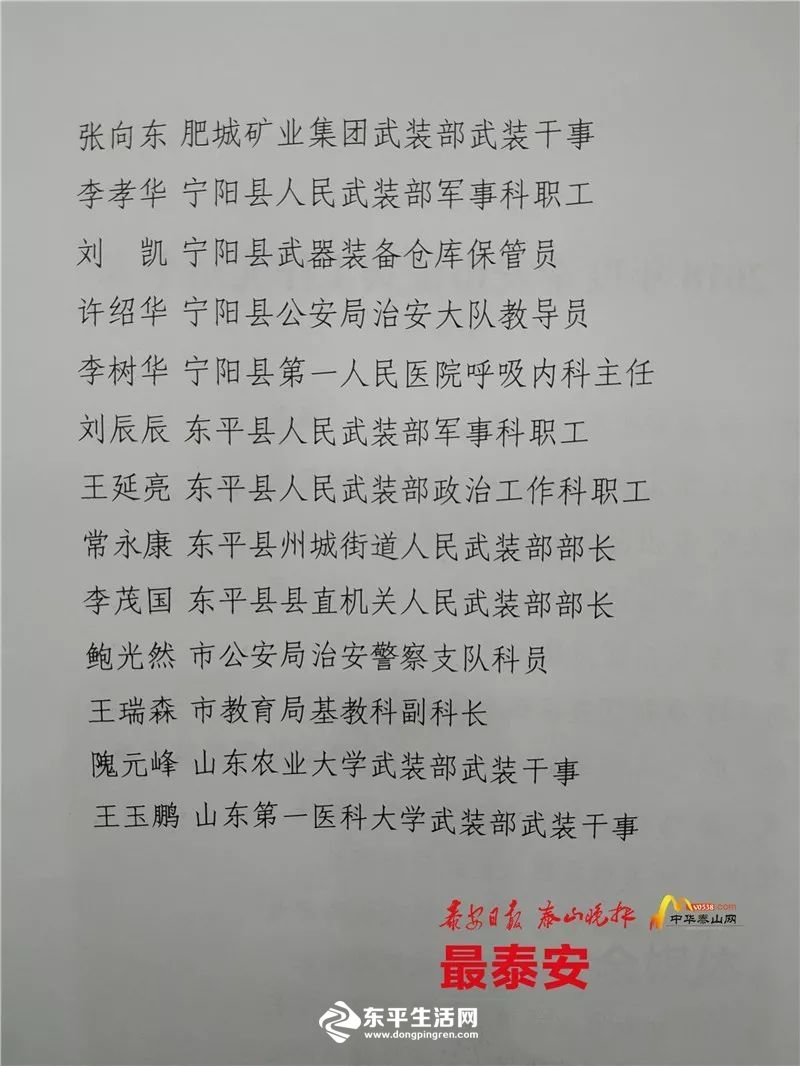 张向东 肥城矿业集团武装部武装干事
李孝华 宁阳县人民武装部军事科职工
刘　凯 宁阳县武器装备仓库保管员
许绍华 宁阳县公安局治安大队教导员
李树华 宁阳县第一人民医院呼吸内科主任
刘辰辰 东平县人民武装部军事科职工
王延亮 东平县人民武装部政治工作科职工
常永康 东平县州城街道人民武装部部长
李茂国 东平县县直机关人民武装部部长
鲍光然 市公安局治安警察支队科员
王瑞森 市教育局基教科副科长
隗元峰 山东农业大学武装部武装干事
王玉鹏 山东第一医科大学武装部武装干事
泰安日报 泰山晚报 中华泰山网
最泰安
东平生活网
www.dongpingren.com